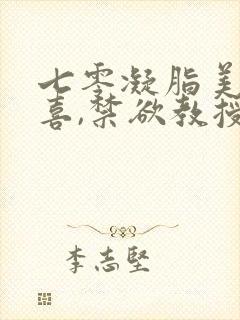 七零凝脂美
喜,禁欲教授
李志坚